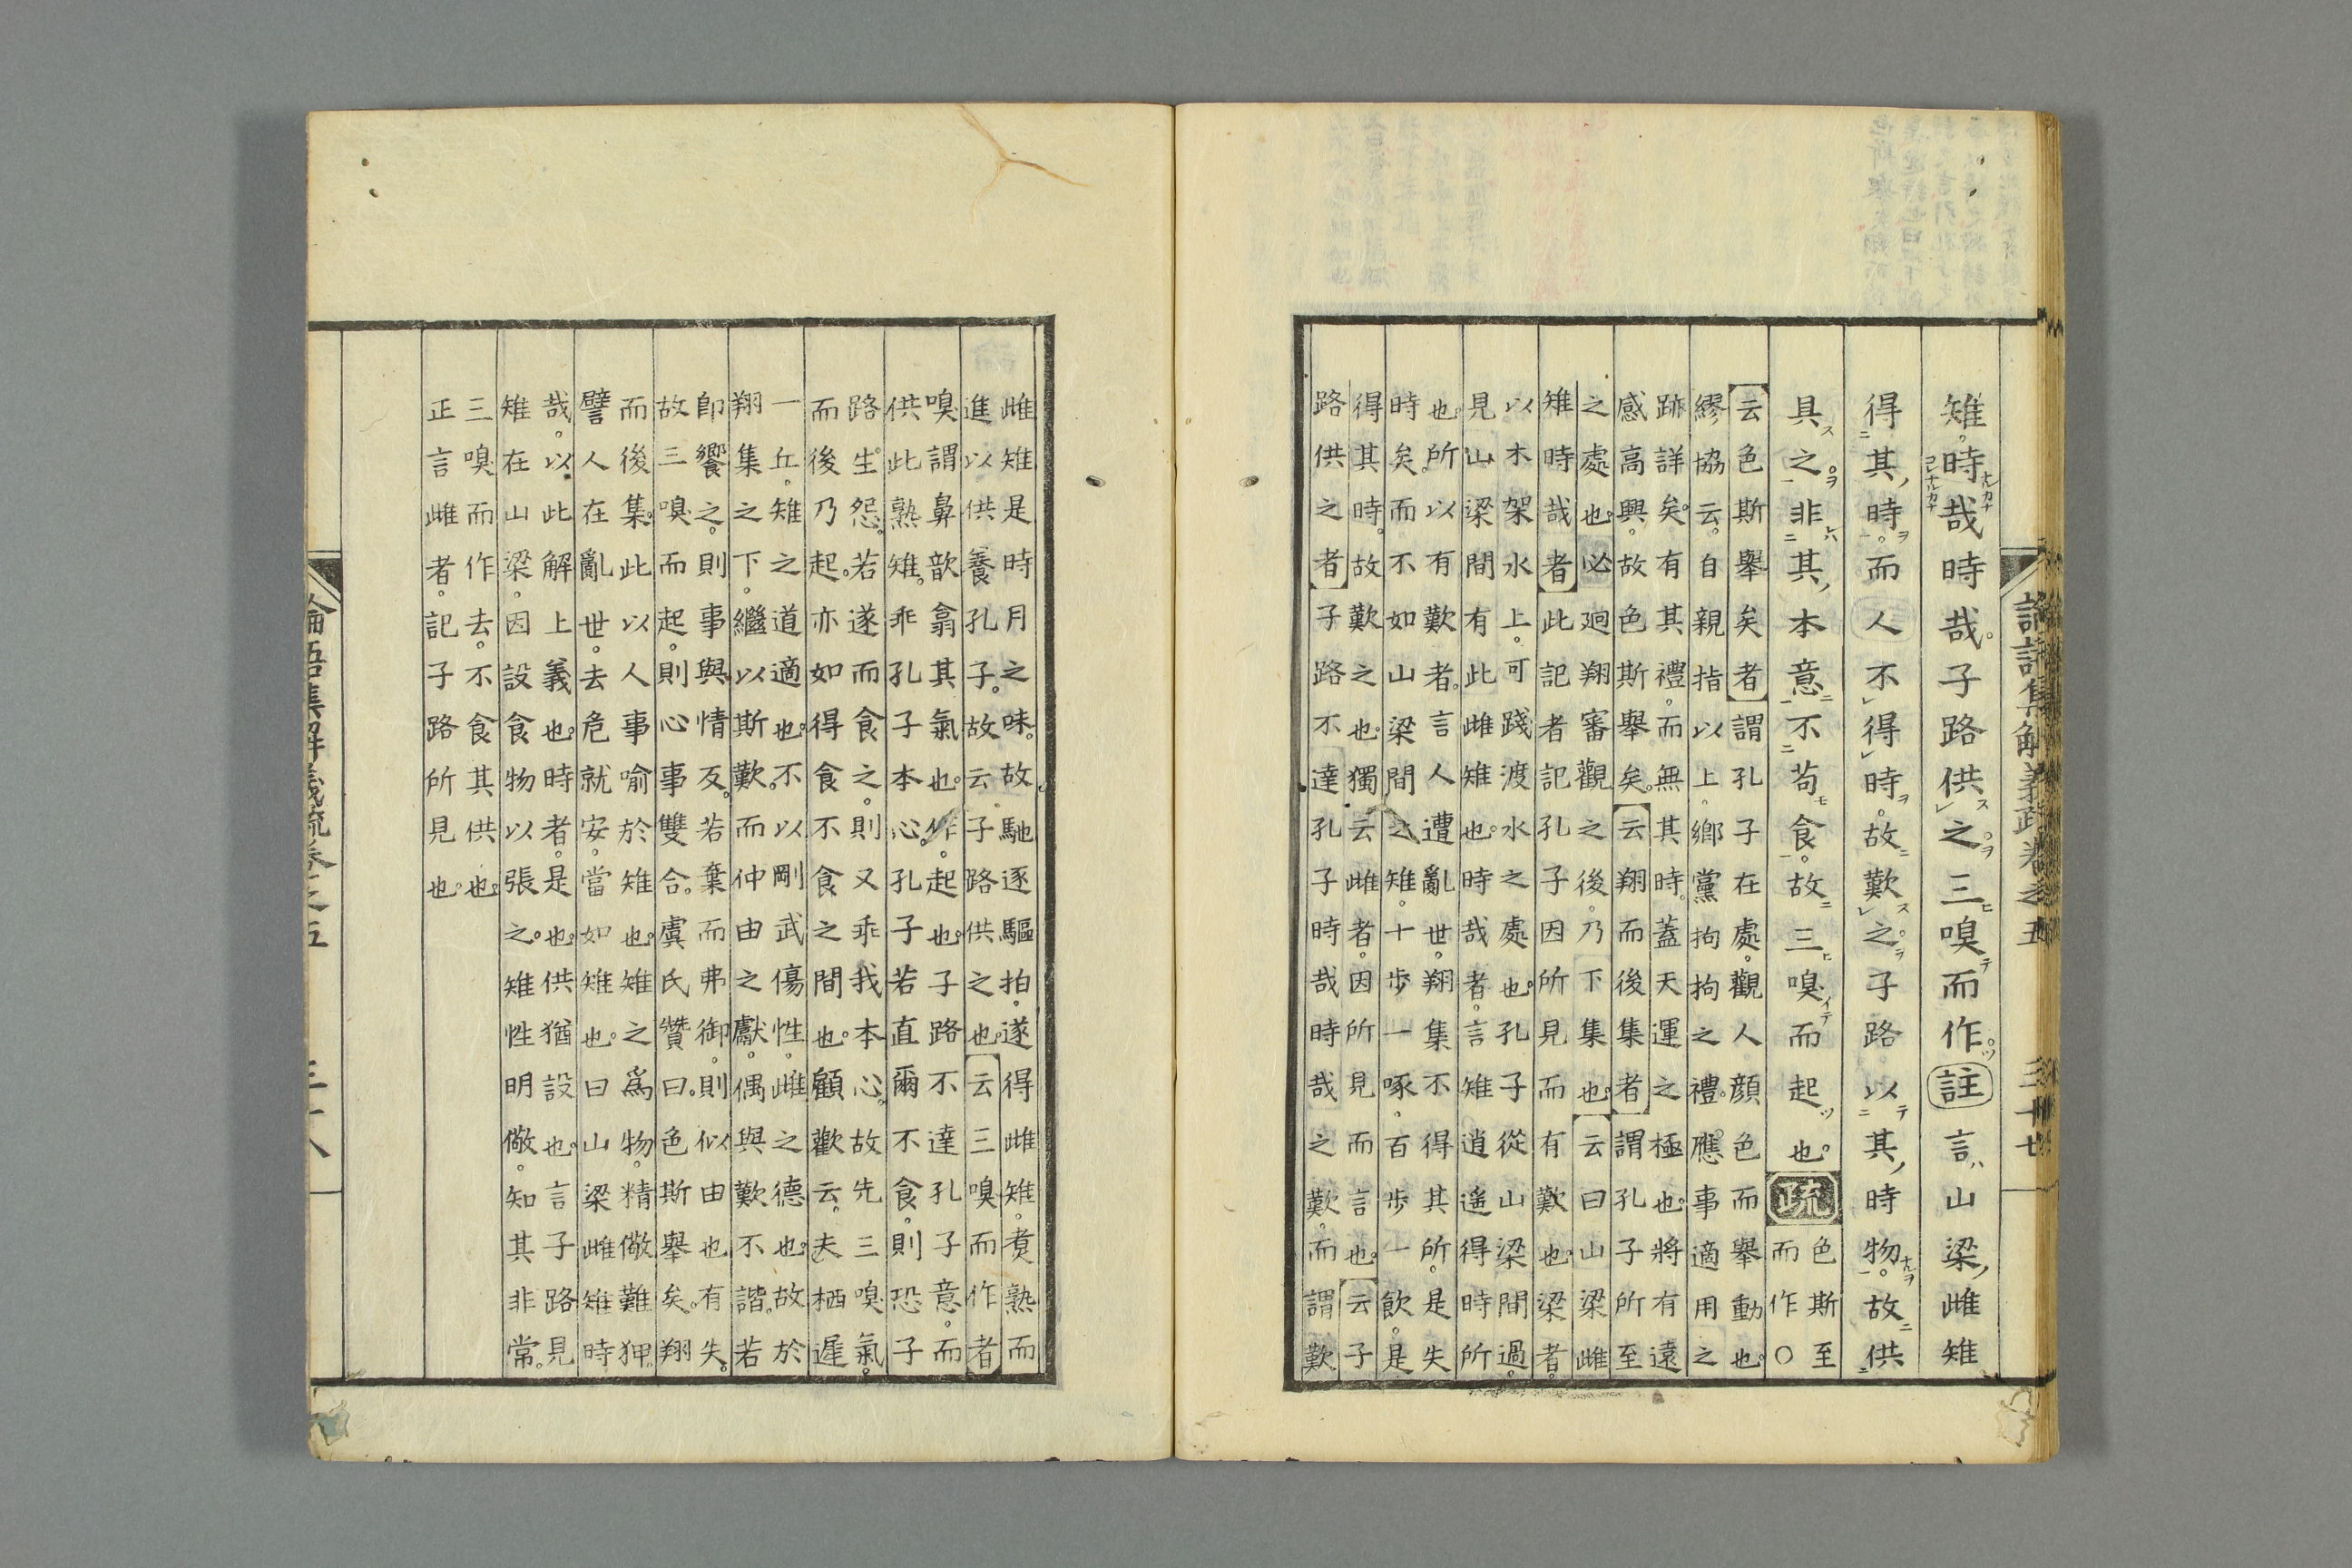 論語集解義疏卷之五　三十七
雉。時哉時哉。子路供之。三嗅而作。註言山梁雌雉
得其時。而人不得時。故歎之。子路以其時物。故供
具之。非其本意。不苟食。故三嗅而起也。疏
色斯至
而作○
云色斯舉矣者謂孔子在處。觀人顏色而舉動也。
繆協云。自親指以上。鄉黨拘拘之禮。應事適用之
跡詳矣。有其禮。而無其時。蓋天運之極也。將有遠
感高興。故色斯舉矣。云翔而後集者謂孔子所至
之處也。必迴翔審觀之後。乃下集也。云曰山梁雌
雉時哉者此記者記孔子因所見而有歎也。梁者。
以木架水上。可踐渡水之處也。孔子從山梁間過。
見山梁間有此雌雉也。時哉者。言雉逍遙得時所
也。所以有歎者。言人遭亂世。翔集不得其所。是失
時矣。而不如山梁間之雉。十步一啄。百步一飲。是
得其時。故歎之也。獨云雌者。因所見而言也。云子
路供之者子路不達孔子時哉時哉之歎。而謂歎
雌雉是時月之味。故馳逐驅拍。遂得雌雉。煑熟而
進以供養孔子。故云子路供之也。云三嗅而作者
嗅謂鼻歆翕其氣也。作。起也。子路不達孔子意。而
供此熟雉。乖孔子本心。孔子若直爾不食。則恐子
路生怨。若遂而食之。則又乖我本心。故先三嗅氣。
而後乃起。亦如得食不食之間也。顧歡云。夫栖遲
一丘。雉之道適也。不以剛武傷性。雌之德也。故於
翔集之下。繼以斯歎。而仲由之獻。偶與歎不諧。若
卽饗之。則事與情反。若棄而弗御。則似由也有失。
故三嗅而起。則心事雙合。虞氏贊曰。色斯舉矣。翔
而後集。此以人事喻於雉也。雉之爲物。精儆難狎。
譬人在亂世。去危就安。當如雉也。曰山梁雌雉時
哉。以此解上義也。時者。是也。供猶設也。言子路見
雉在山梁。因設食物以張之。雉性明儆。知其非常。
三嗅而作去。不食其供也。
正言雌者。記子路所見也。
論語集解義疏卷之五